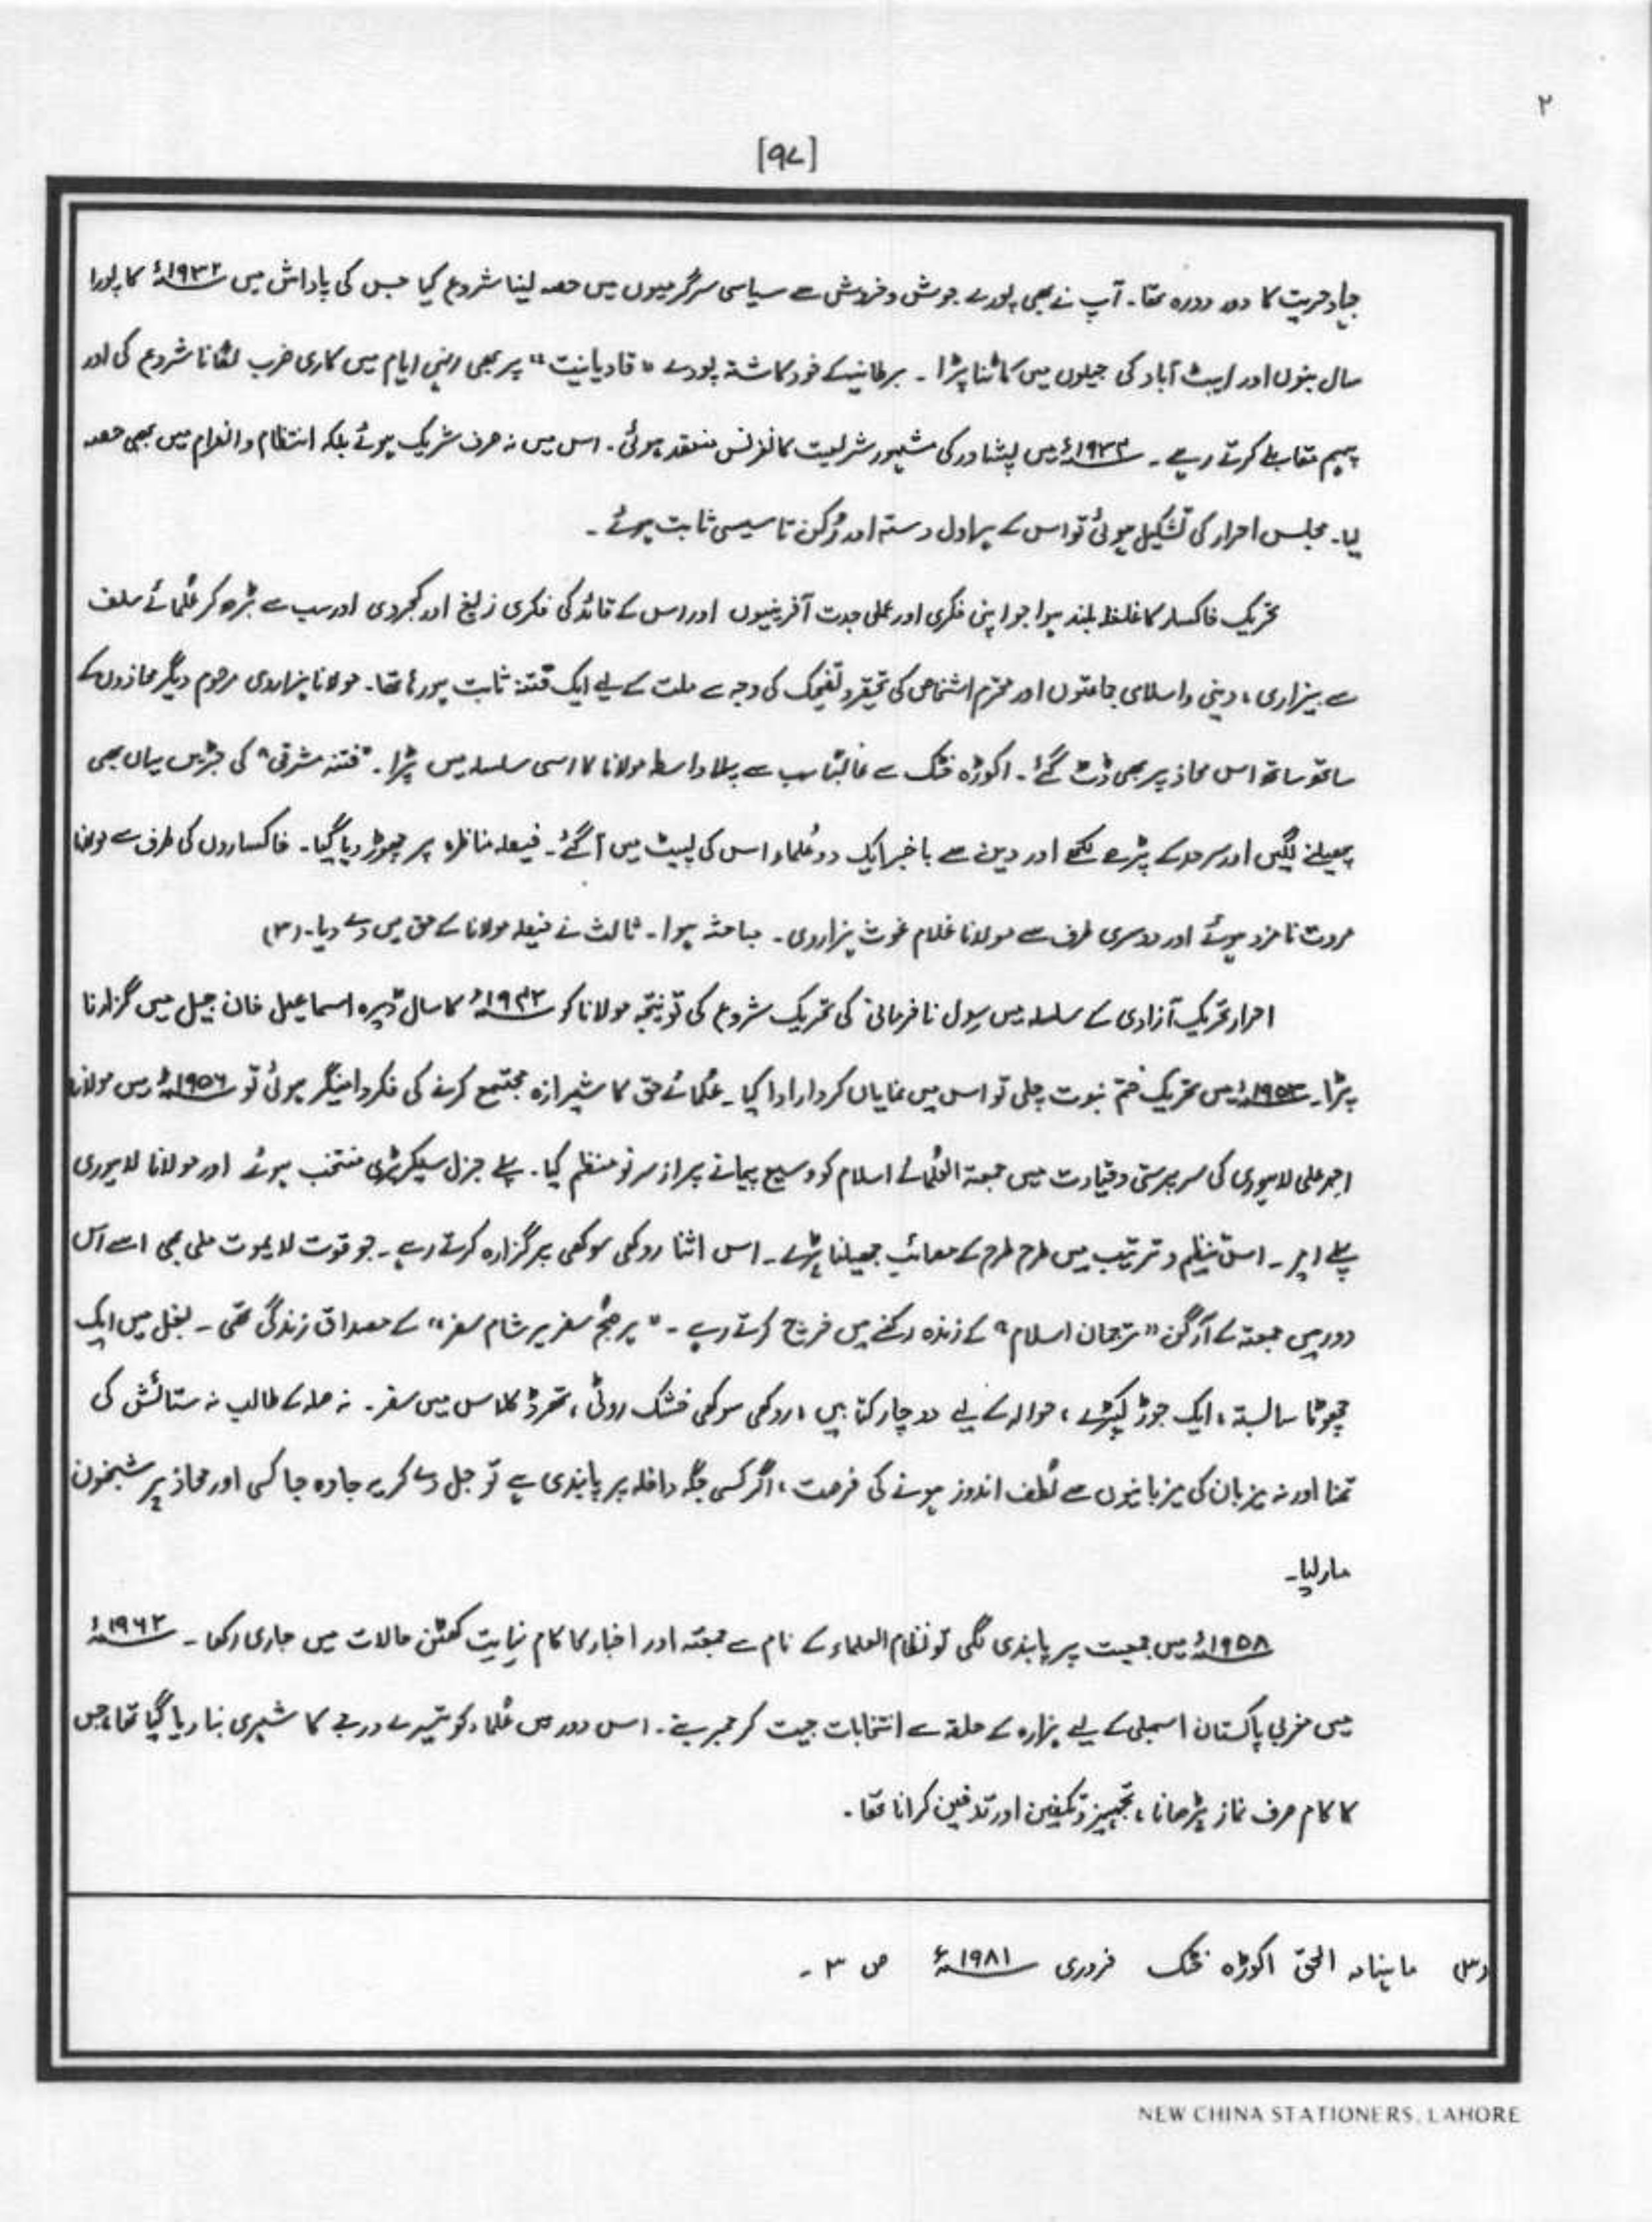 ۲
[۹۷]
جہادِ حریت کا دور دورہ تھا۔ آپ نے بھی پورے جوش و خروش سے سیاسی سرگرمیوں میں حصہ لینا شروع کیا جس کی پاداش میں ۱۹۳۲ء کا پورا
سال بنوں اور ایبٹ آباد کی جیلوں میں کاٹنا پڑا ۔ برطانیہ کے خود کاشتہ پودے "قادیانیت" پر بھی انہی ایام میں کاری ضرب لگانا شروع کی اور
پیہم مقابلے کرتے رہے ۔ ۱۹۳۳ء میں پشاور کی مشہور شریعت کانفرنس منعقد ہوئی۔ اس میں نہ صرف شریک ہوئے بلکہ انتظام و انصرام میں بھی حصہ
لیا۔ مجلس احرار کی تشکیل ہوئی تو اس کے ہراول دستہ اور رُکن تاسیسی ثابت ہوئے ۔
تحریک خاکسار کا غلغلہ بلند ہوا جو اپنی فکری اور عملی جدت آفرینیوں اور اس کے قائد کی فکری زیغ اور کجروی اور سب سے بڑھ کر عُلمائے سلف
سے بیزاری ، دینی و اسلامی جماعتوں اور محترم اشخاص کی تحقیر و تضحیک کی وجہ سے ملت کے لیے ایک فتنہ ثابت ہو رہا تھا۔ مولانا ہزاروی مرحوم دیگر محاذوں کے
ساتھ ساتھ اس محاذ پر بھی ڈٹ گئے ۔ اکوڑہ خٹک سے غالبًا سب سے پہلا واسطہ مولانا کا اسی سلسلہ میں پڑا ۔ "فتنہ مشرقی" کی جڑیں یہاں بھی
پھیلنے لگیں اور سرحد کے پڑھے لکھے اور دین سے باخبر ایک دو عُلماء اس کی لپیٹ میں آگئے ۔ فیصلہ مناظرہ پر چھوڑ دیا گیا ۔ خاکساروں کی طرف سے مولانا
مروت نامزد ہوئے اور دوسری طرف سے مولانا غلام غوث ہزاروی ۔ مباحثہ ہوا ۔ ثالث نے فیصلہ مولانا کے حق میں دے دیا۔ (۳)
احرار تحریک آزادی کے سلسلہ میں سول نافرمانی کی تحریک شروع کی تو نتیجۃً مولانا کو ۱۹۴۲ء کا سال ڈیرہ اسماعیل خان جیل میں گزارنا
پڑا۔ ۱۹۵۳ء میں تحریک ختم نبوت چلی تو اس میں نمایاں کردار ادا کیا ۔ عُلمائے حق کا شیرازہ مجتمع کرنے کی فکر دامنگیر ہوئی تو ۱۹۵۶ء میں مولانا
احمد علی لاہوری کی سرپرستی و قیادت میں جمعیۃ العُلمائے اسلام کو وسیع پیمانے پر از سرِ نو منظم کیا ۔ پہلے جنرل سیکریٹری منتخب ہوئے اور مولانا لاہوری
پہلے امیر ۔ اس تنظیم و ترتیب میں طرح طرح کے مصائب جھیلنا پڑے ۔ اس اثنا روکھی سوکھی پر گزارہ کرتے رہے ۔ جو قوت لایموت ملی بھی اسے اس
دور میں جمعیۃ کے آرگن "ترجمان اسلام" کے زندہ رکھنے میں خرچ کرتے رہے ۔ "ہر صبح سفر ہر شام سفر" کے مصداق زندگی تھی ۔ بغل میں ایک
چھوٹا سا بستہ ، ایک جوڑ کپڑے ، حوالہ کے لیے دو چار کتابیں ، روکھی سوکھی خشک روٹی ، تھرڈ کلاس میں سفر ۔ نہ صلہ کے طالب نہ ستائش کی
تمنا اور نہ میزبان کی میزبانیوں سے لُطف اندوز ہونے کی فرصت ، اگر کسی جگہ داخلہ پر پابندی ہے تو جل دے کر یہ جا وہ جا کسی اور محاذ پر شبخون
مار لیا۔
۱۹۵۸ء میں جمعیت پر پابندی لگی تو نظام العلماء کے نام سے جمعیۃ اور اخبار کا کام نہایت کھٹن حالات میں جاری رکھا ۔ ۱۹۶۲ء
میں مغربی پاکستان اسمبلی کے لیے ہزارہ کے حلقہ سے انتخابات جیت کر ممبر بنے ۔ اس دور میں عُلماء کو تیسرے درجے کا شہری بنا دیا گیا تھا، جس
کا کام صرف نماز پڑھانا ، تجہیز و تکفین اور تدفین کرانا تھا ۔
(۳) ماہنامہ الحق اکوڑہ خٹک فروری ۱۹۸۱ء ص ۳ ۔
NEW CHINA STATIONERS, LAHORE